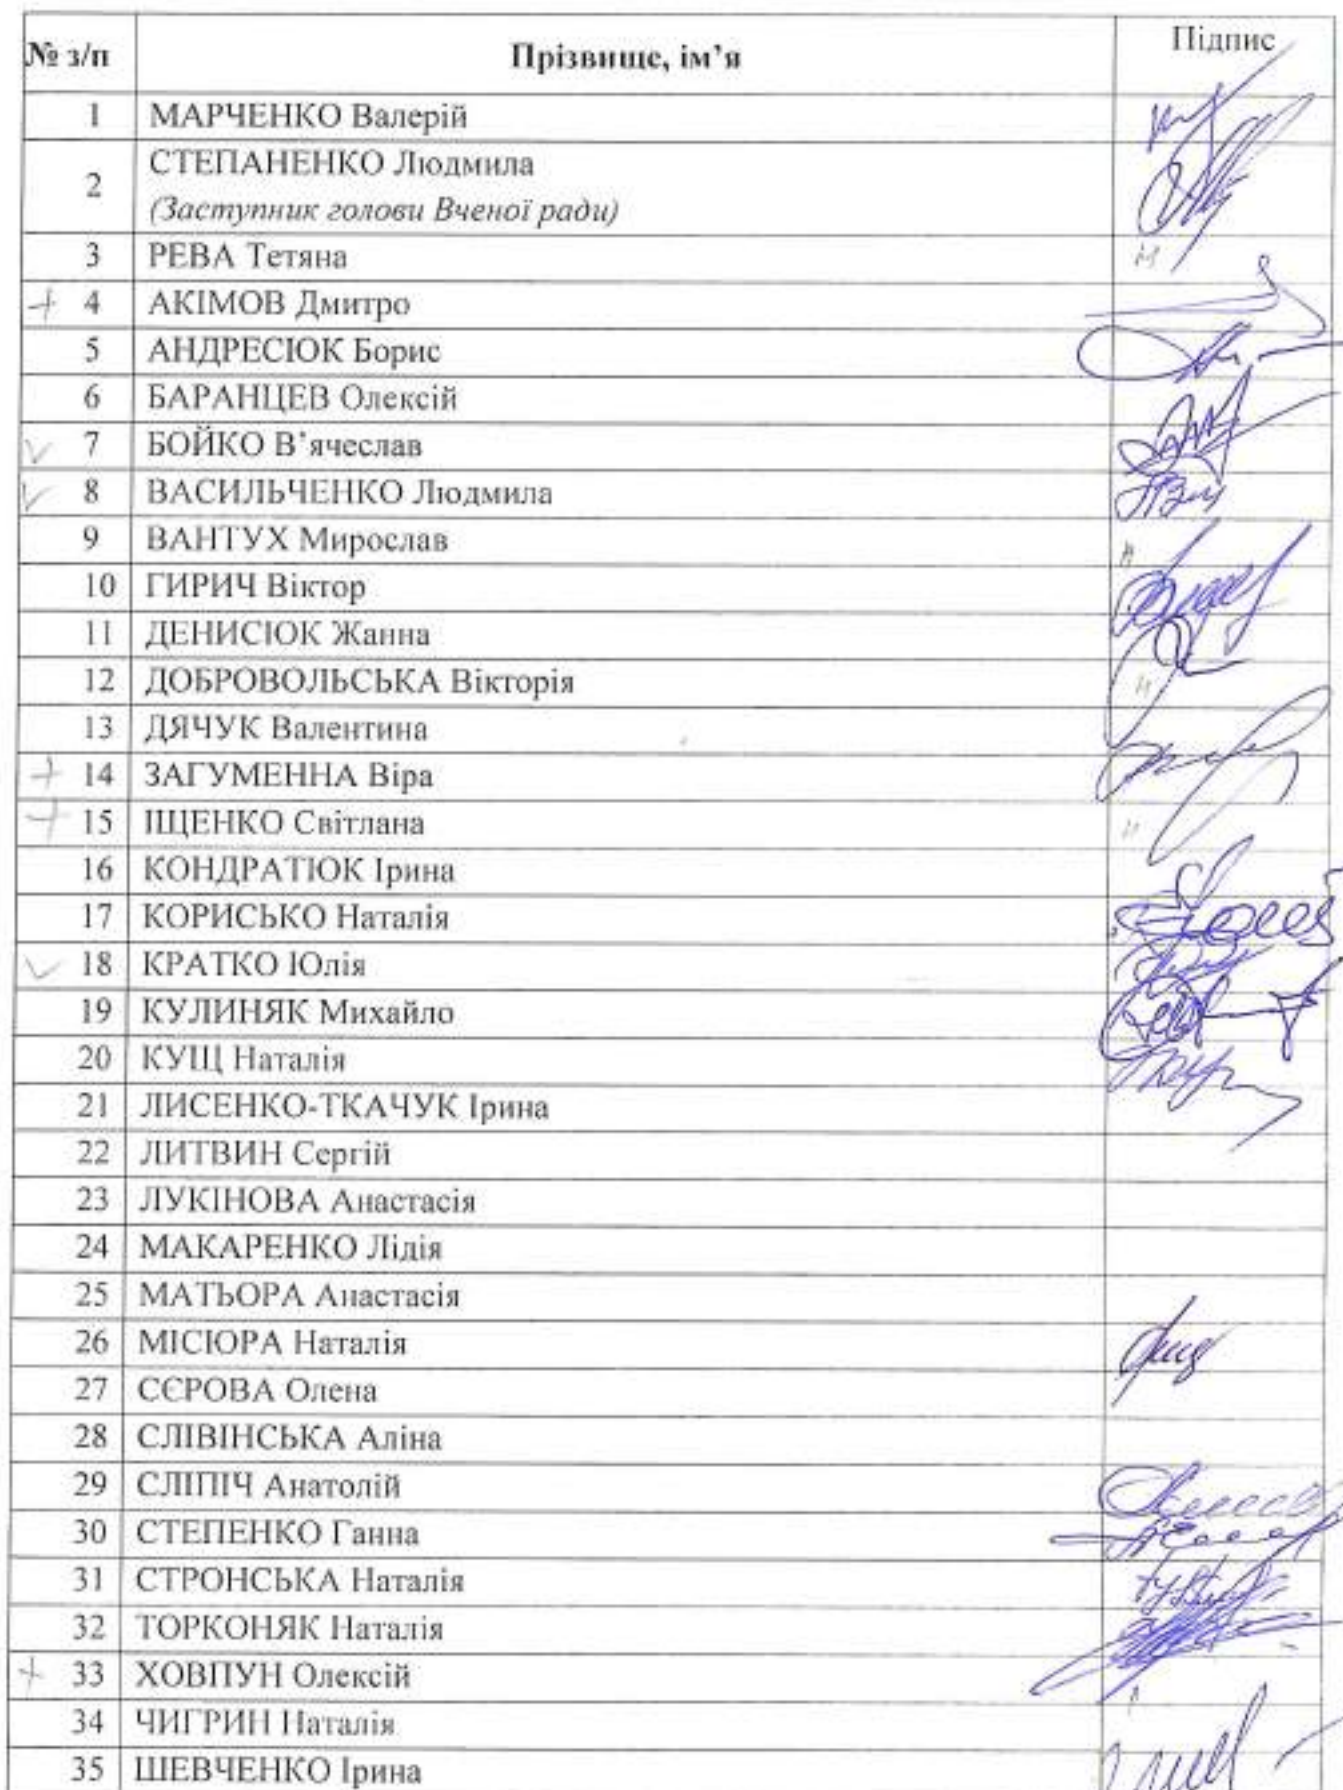 № з/п Прізвище, ім’я Підпис
1 МАРЧЕНКО Валерій
2 СТЕПАНЕНКО Людмила
(Заступник голови Вченої ради)
3 РЕВА Тетяна
+ 4 АКІМОВ Дмитро
5 АНДРЕСЮК Борис
6 БАРАНЦЕВ Олексій
7 БОЙКО В’ячеслав
8 ВАСИЛЬЧЕНКО Людмила
9 ВАНТУХ Мирослав
10 ГИРИЧ Віктор
11 ДЕНИСЮК Жанна
12 ДОБРОВОЛЬСЬКА Вікторія
13 ДЯЧУК Валентина
+ 14 ЗАГУМЕННА Віра
+ 15 ІЩЕНКО Світлана
16 КОНДРАТЮК Ірина
17 КОРИСЬКО Наталія
18 КРАТКО Юлія
19 КУЛИНЯК Михайло
20 КУЩ Наталія
21 ЛИСЕНКО-ТКАЧУК Ірина
22 ЛИТВИН Сергій
23 ЛУКІНОВА Анастасія
24 МАКАРЕНКО Лідія
25 МАТЬОРА Анастасія
26 МІСЮРА Наталія
27 СЄРОВА Олена
28 СЛІВІНСЬКА Аліна
29 СЛІПІЧ Анатолій
30 СТЕПЕНКО Ганна
31 СТРОНСЬКА Наталія
32 ТОРКОНЯК Наталія
+ 33 ХОВПУН Олексій
34 ЧИГРИН Наталія
35 ШЕВЧЕНКО Ірина